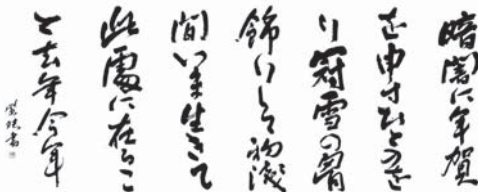 暗闇に年賀
を申すひとの達
り冠雪の富
錦りして初浅
間いま生きて
此處に在るこ
と去年今年